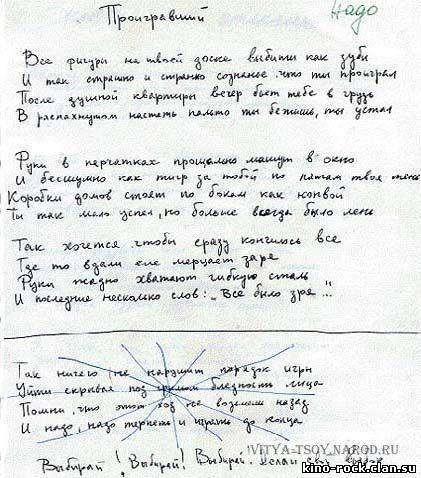 Проигравший
Надо
Все фигуры на твоей доске выбиты как зубы
И так страшно и странно сознанье что ты проиграл
После душной квартиры ветер бьет тебе в грудь
В распахнутом настеж пальто ты бежишь, ты устал
Руки в перчатках прощально машут в окно
И бесшумно как тигр за тобой по пятам твоя тень
Коробки домов стоят по бокам как конвой
Ты так мало успел, но больше всегда было лень
Так хочется чтобы сразу кончилось все
Где то вдали еле мерцает заря
Руки жадно хватают гибкую сталь
И последние несколько слов: „Все было зря..."
Так ничего не нарушит порядок игры
Уйти скрывая под гримом бледность лица
Помни, что этот ход не возьмешь назад
И надо, надо терпеть и играть до конца
Выбирай! Выбирай! Выбирай.
VITYA-TSOY.NAROD.RU
kino-rock.clan.su